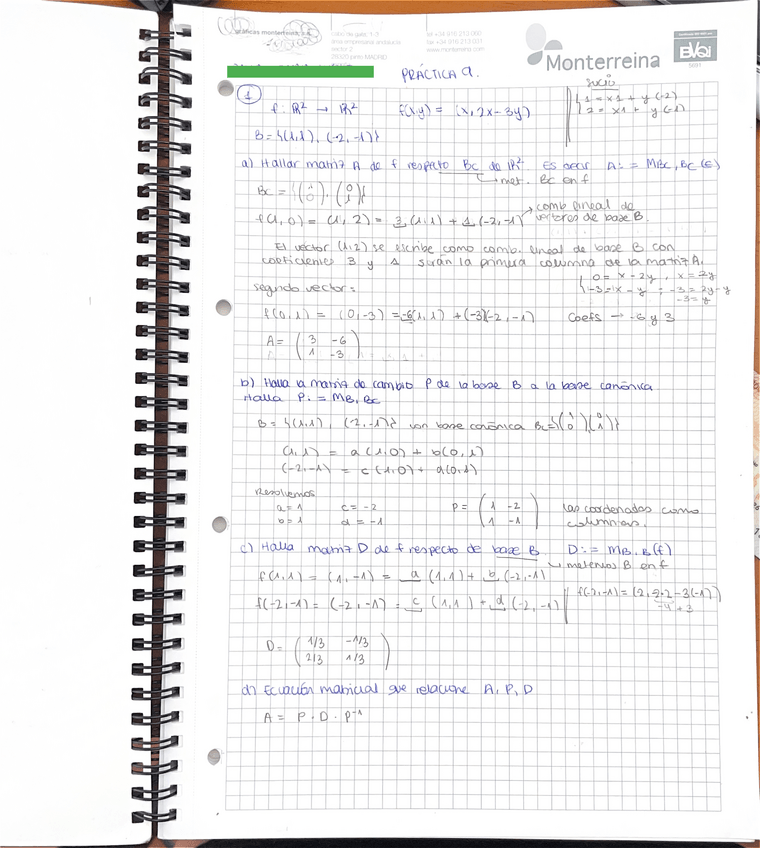 gráficas monterreina, s.a.
área empresarial andalucía
sector 2
28320 pinto MADRID
tel +34 916 213 060
fax +34 916 213 031
www.monterreina.com
Monterreina
PRÁCTICA 9.
sucio
1 = x1 + y(-2)
2 = x1 + y(-1)
1
f: ℝ² → ℝ² f(x,y) = (x, 2x-3y)
B = {(1,1), (-2,-1)}
a) Hallar matriz A de f respecto Bc de ℝ² Es decir A: = MBc, Bc (E)
→ met. Bc en f
Bc = {(1 0), (0 1)}
f(1,0) = (1,2) = 3(1,1) + 1(-2,-1) → comb lineal de vectores de base B.
El vector (1,2) se escribe como comb. lineal de base B con
coeficientes 3 y 1 serán la primera columna de la matriz A.
0 = x - 2y, x = 2y
-3 = 1x - y ; -3 = 2y - y
-3 = y
Segundo vector:
f(0,1) = (0,-3) = -6(1,1) + (-3)(-2,-1) Coefs → -6 y 3
A = ( 3 -6
1 -3 )
b) Halla la matriz de cambio P de la base B a la base canónica
Halla P: = MB, Bc
B = {(1,1), (-2,-1)} con base canónica Bc = {(1 0) (0 1)}
(1,1) = a(1,0) + b(0,1)
(-2,-1) = c(1,0) + d(0,1)
Resolvemos
a = 1 c = -2
b = 1 d = -1
P = ( 1 -2
1 -1 )
las coordenadas como
columnas.
c) Halla matriz D de f respecto de base B D: = MB, B(f)
→ metemos B en f
f(1,1) = (1,-1) = a (1,1) + b (-2,-1)
f(-2,-1) = (-2,-1) = c (1,1) + d (-2,-1)
f(-2,-1) = (2, -2·2 - 3(-1))
-4 + 3
D = ( 1/3 -1/3
2/3 1/3 )
d) Ecuación matricial que relacione A, P, D
A = P · D · P⁻¹